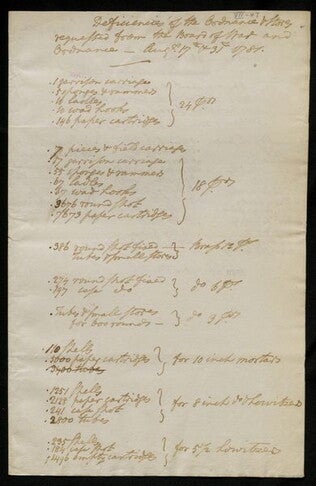 VII-47
Deficiencies of the Ordnance & Stores
requested from the Board of War and
Ordnance — Augt. 1st & 3d 1781.
.1 garrison carriage
.5 sponges & rammers
.16 ladles
wad hooks
.146 paper cartridges
24 Prs
.7 pieces & field carriages
.17 garrison carriages
.35 sponges & rammers
.67 ladles
.37 wad hooks
.3676 round shot
.7673 paper cartridges
18 Prs
.386 round shot fixed — Brass 12 Pr
tubes & small stores
.279 round shot fixed
.197 case do
do 6 Prs
.Tubes & small stores
for 600 rounds —
do 3 Prs
.110 shells
.3600 paper cartridges
.3400 tubes
for 10 inch mortars
.1251 shells
.2128 paper cartridges
.241 case shot
.2800 tubes
for 8 inch do & howitzers
.235 shells
.184 case shot
.1496 empty cartridges
for 5½ howitzers